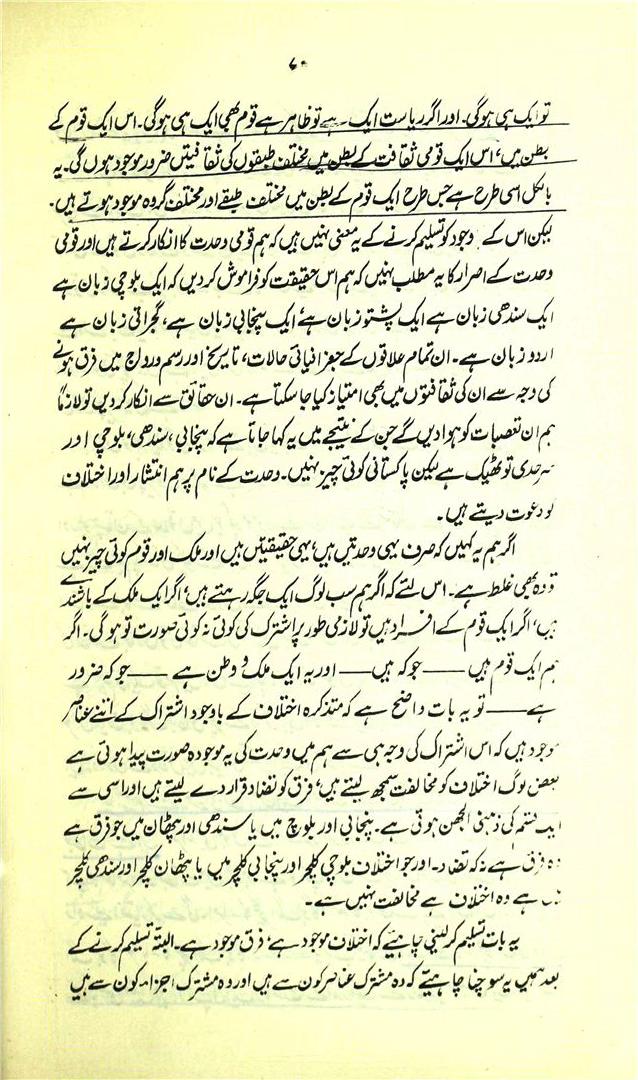 ۷۰
تو ایک ہی ہوگی۔ اور اگر ریاست ایک ہے تو ظاہر ہے قوم بھی ایک ہی ہوگی۔ اس ایک قوم کے
بطن میں، اس ایک قومی ثقافت کے بطن میں مختلف طبقوں کی ثقافیتں ضرور موجود ہوں گی۔ یہ
بالکل اسی طرح ہے جس طرح ایک قوم کے بطن میں مختلف طبقے اور مختلف گروہ موجود ہوتے ہیں۔
لیکن اس کے وجود کو تسلیم کرنے کے یہ معنی نہیں ہیں کہ ہم قومی وحدت کا انکار کرتے ہیں اور قومی
وحدت کے اصرار کا یہ مطلب نہیں کہ ہم اس حقیقت کو فراموش کر دیں کہ ایک بلوچی زبان ہے
ایک سندھی زبان ہے ایک پشتو زبان ہے، ایک پنجابی زبان ہے، گجراتی زبان ہے
اردو زبان ہے۔ ان تمام علاقوں کے جغرافیائی حالات، تاریخ اور رسم و رواج میں فرق ہونے
کی وجہ سے ان کی ثقافتوں میں بھی امتیاز کیا جاسکتا ہے۔ ان حقائق سے انکار کر دیں تو لازماً
ہم ان تعصبات کو ہوا دیں گے جن کے نتیجے میں یہ کہا جاتا ہے کہ پنجابی، سندھی، بلوچی اور
سرحدی تو ٹھیک ہے لیکن پاکستانی کوئی چیز نہیں۔ وحدت کے نام پر ہم انتشار اور اختلاف
کو دعوت دیتے ہیں۔
اگر ہم یہ کہیں کہ صرف یہی وحدتیں ہیں، یہی حقیقیتں ہیں اور ملک اور قوم کوئی چیز نہیں
تو وہ بھی غلط ہے۔ اس لئے کہ اگر ہم سب لوگ ایک جگہ رہتے ہیں، اگر ایک ملک کے باشندے
ہیں، اگر ایک قوم کے افراد ہیں تو لازمی طور پر اشترک کی کوئی نہ کوئی صورت تو ہوگی۔ اگر
ہم ایک قوم ہیں —— جو کہ ہیں —— اور یہ ایک ملک و وطن ہے —— جو کہ ضرور
ہے —— تو یہ بات واضح ہے کہ متذکرہ اختلاف کے باوجود اشتراک کے اتنے عناصر
موجود ہیں کہ اس اشتراک کی وجہ ہی سے ہم میں وحدت کی یہ موجودہ صورت پیدا ہوئی ہے
بعض لوگ اختلاف کو مخالفت سمجھ لیتے ہیں، فرق کو تضاد قرار دے لیتے ہیں اور اسی سے
ایک قسم کی ذہنی الجھن ہوتی ہے۔ پنجابی اور بلوچ میں یا سندھی اور پٹھان میں جو فرق ہے
وہ فرق ہے نہ کہ تضاد۔ اور جو اختلاف بلوچی کلچر اور پنجابی کلچر میں یا پٹھان کلچر اور سندھی کلچر
میں ہے وہ اختلاف ہے مخالفت نہیں ہے۔
یہ بات تسلیم کر لینی چاہیئے کہ اختلاف موجود ہے، فرق موجود ہے۔ البتہ تسلیم کرنے کے
بعد ہمیں یہ سوچنا چاہیئے کہ وہ مشترک عناصر کون سے ہیں اور وہ مشترک اجزاء کون سے ہیں